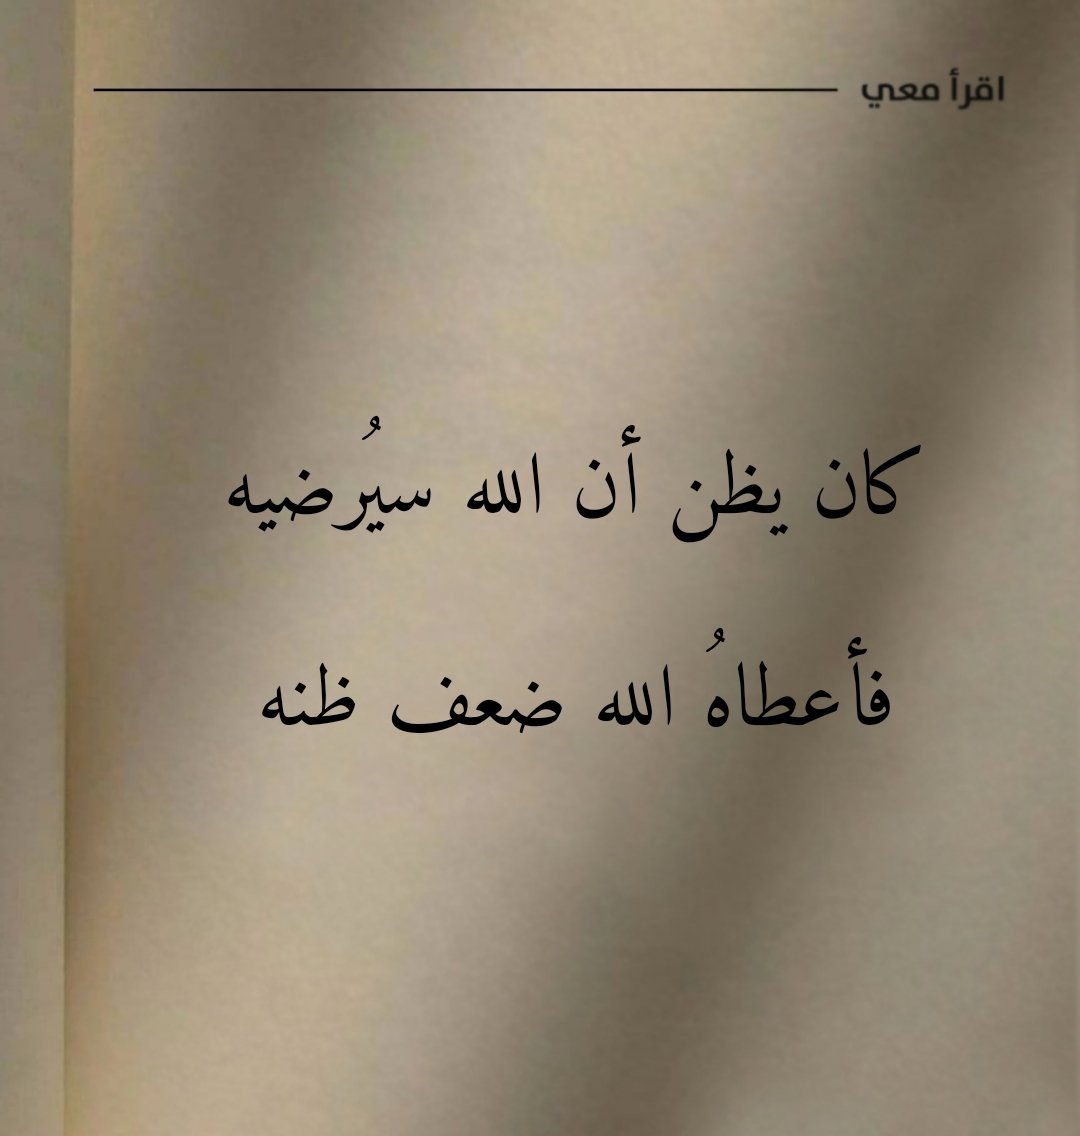 اقرأ معي
كان يظن أن الله سيُرضيه
فأعطاهُ الله ضعف ظنه